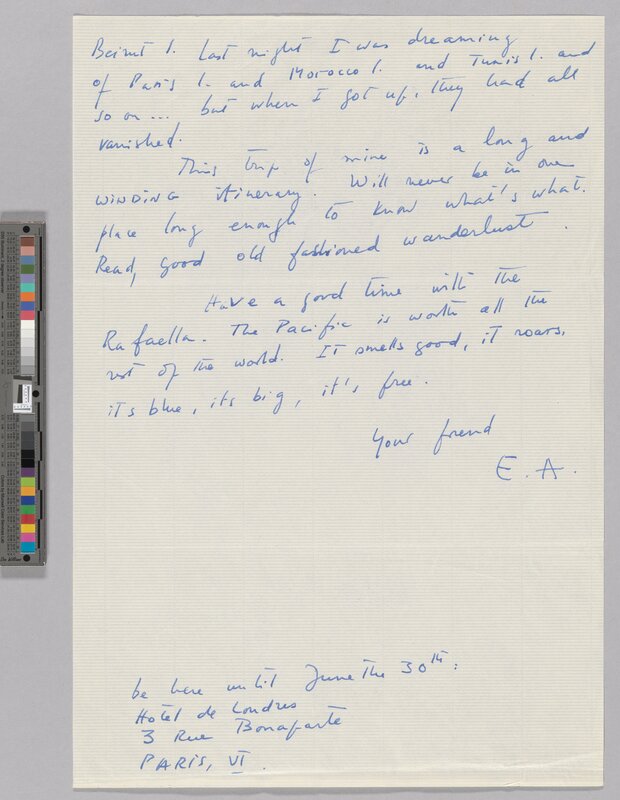 Beirut I. Last night I was dreaming
of Paris I. and Morocco I. and Tunis I. and
so on..., but when I got up, they had all
vanished.
This trip of mine is a long and
WINDING itinerary. Will never be in one
place long enough to know what's what.
Read, good old fashioned wanderlust.
Have a good time with the
Rafaella. The Pacific is worth all the
rest of the world. It smells good, it roars,
it's blue, its big, it's free.
Your friend
E. A.
be here until June the 30th:
Hotel de Londres
3 Rue Bonaparte
PARIS, VI.